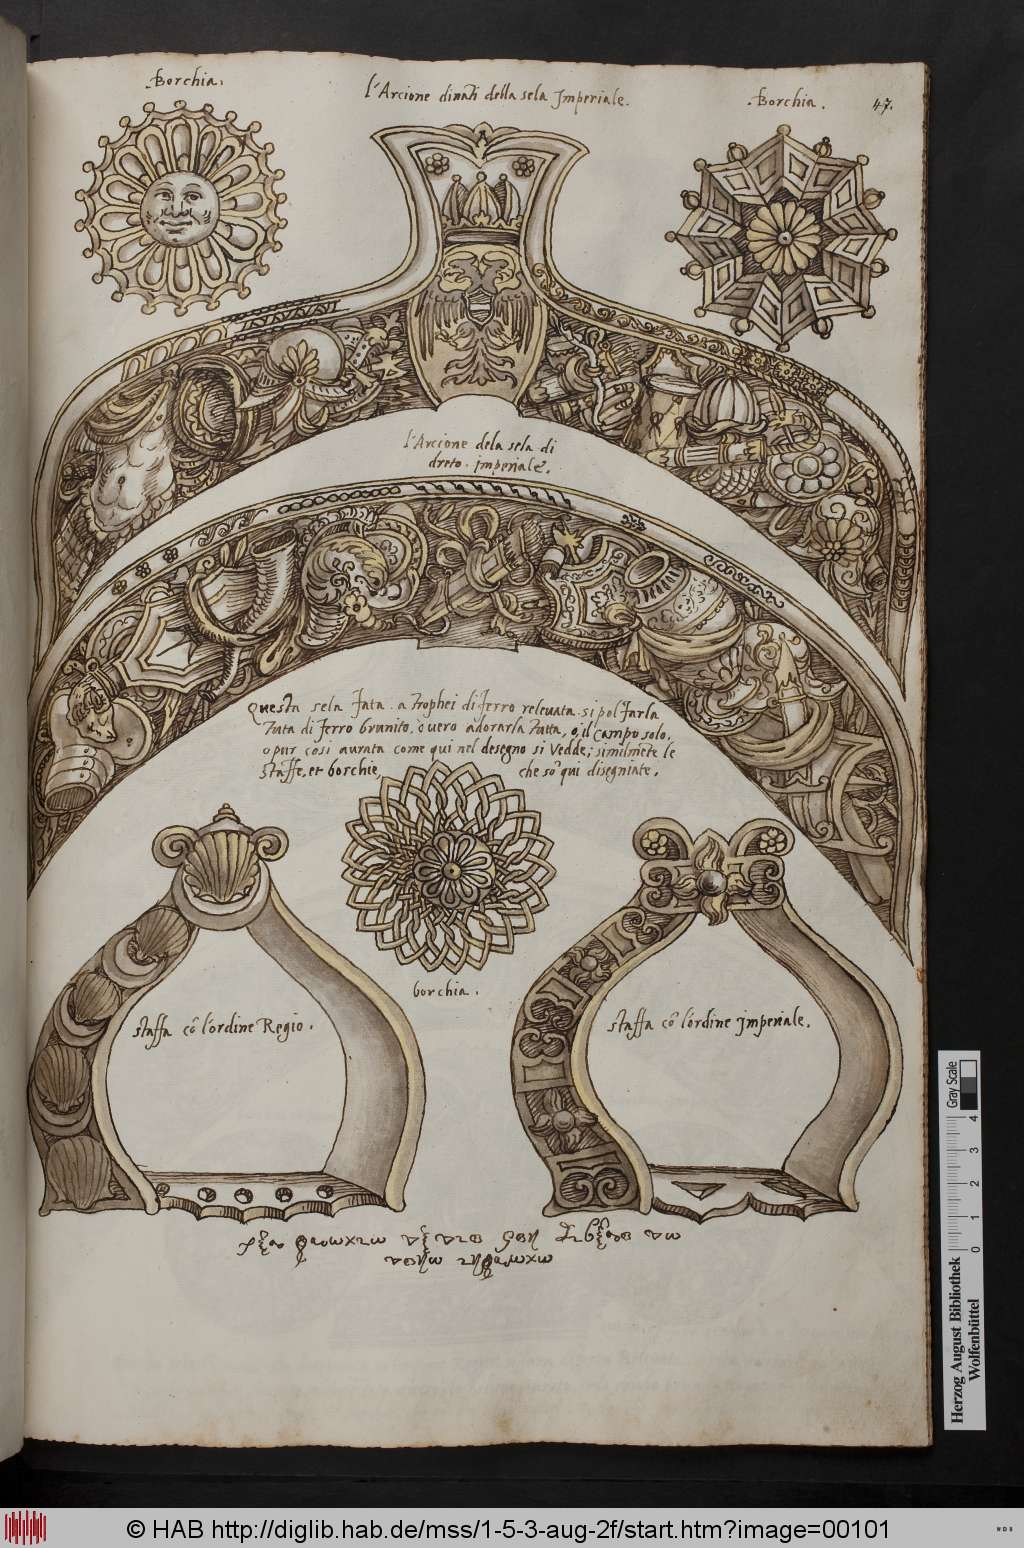 Borchia.
l'Arcione dināti della sela Imperiale.
Borchia.
47.
l'Arcione dela sela di
dreto. imperiale.
Questa sela fata. a trophei di ferro releuata. si pol farla
Tuta di ferro brunito, o uero adorarla Tutta, o, il Campo solo,
o pur cosi aurata come qui nel desegno si vedde; similmēte le
staffe, et borchie, che sō qui disegniate.
borchia.
staffa cō l'ordine Regio.
staffa cō l'ordine imperiale.
Gray Scale
0 1 2 3 4
Herzog August Bibliothek
Wolfenbüttel
© HAB http://diglib.hab.de/mss/1-5-3-aug-2f/start.htm?image=00101
WDB